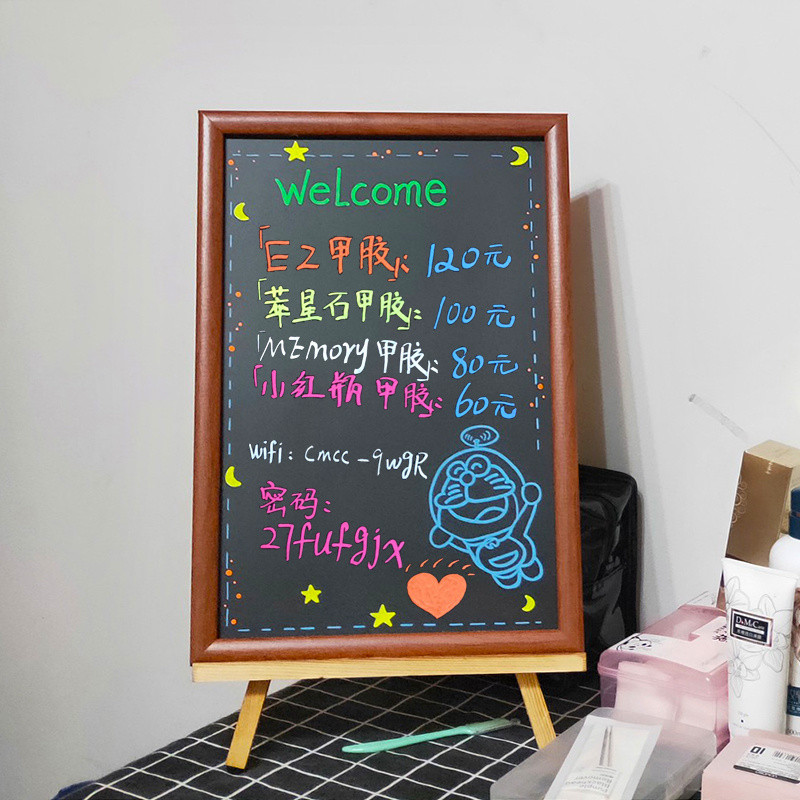 Welcome
「EZ甲胶」: 120元
「苹星石甲胶」: 100元
「MEmory甲胶」: 80元
「小红瓶甲胶」: 60元
wifi: cmcc-9wgR
密码:
27fufgjx
D&M.C
01